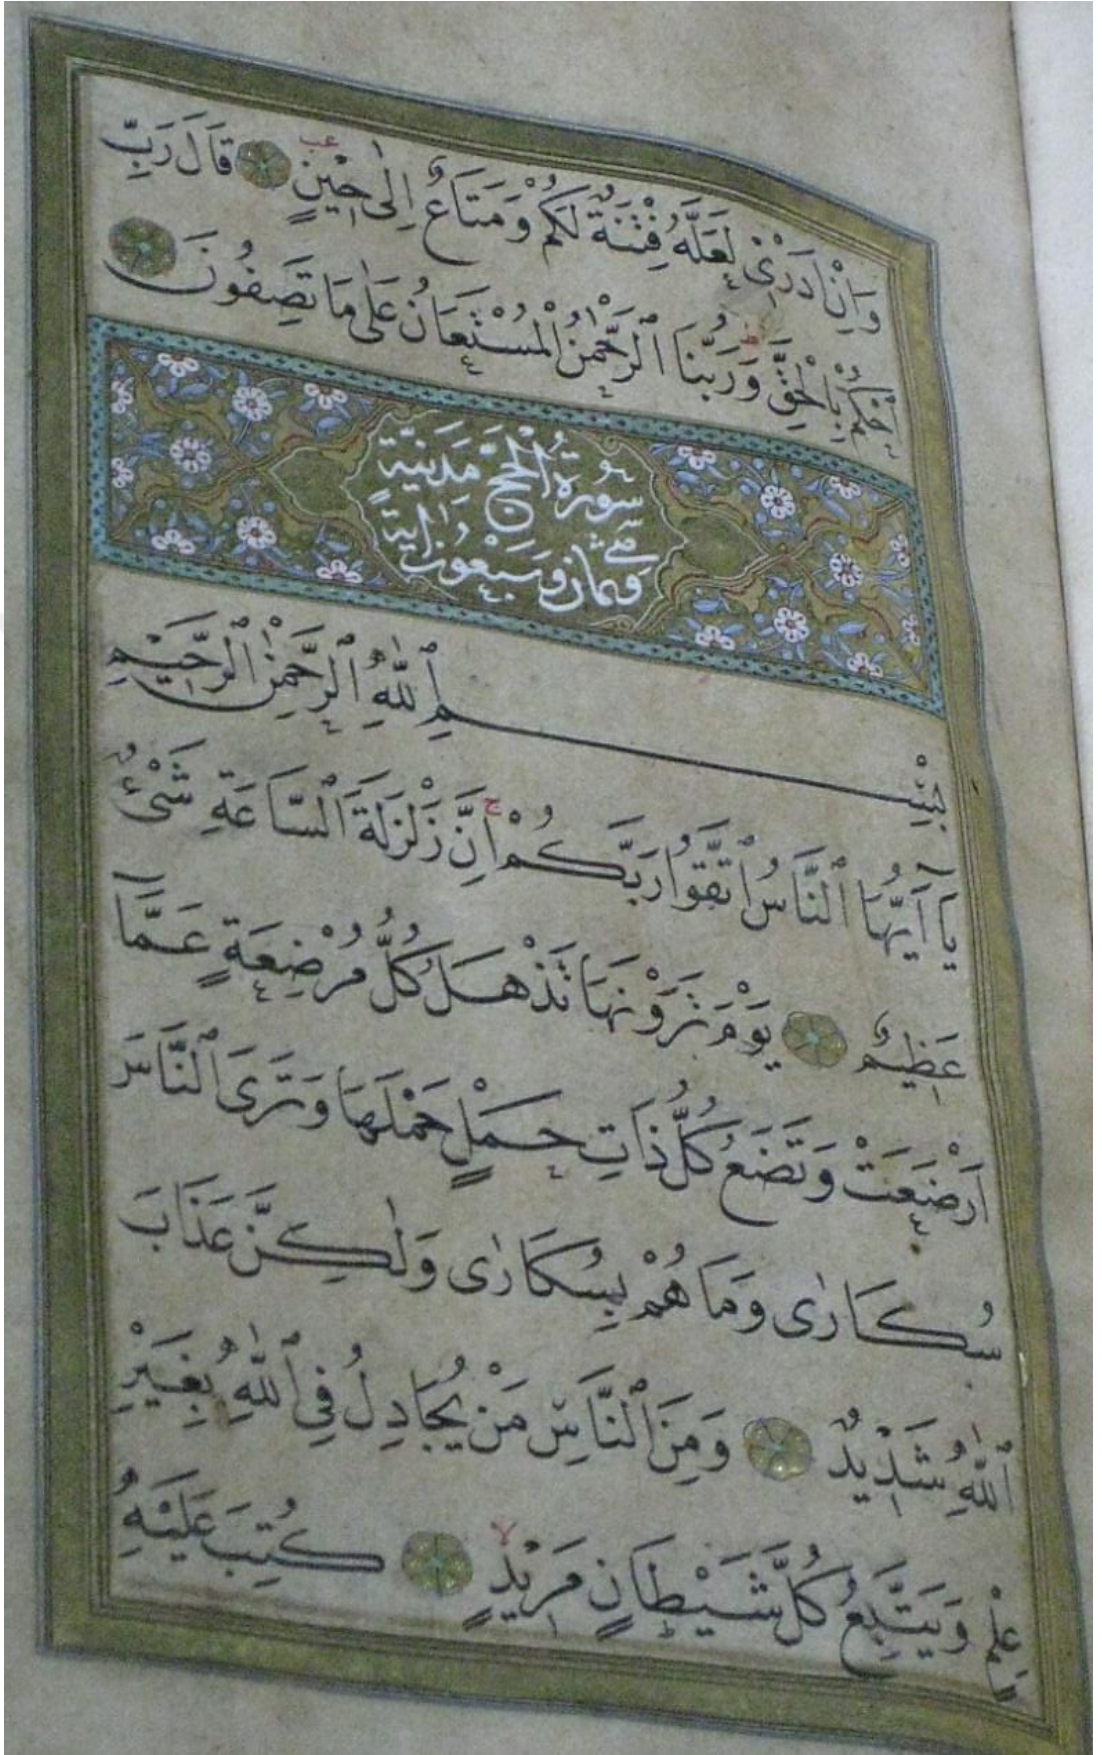 وَاِنْ اَدْرٰى لَعَلَّهُ فِتْنَةٌ لَكُمْ وَمَتَاعٌ اِلٰى حٖينٍ قَالَ رَبِّ
احْكُمْ بِالْحَقِّ وَرَبُّنَا الرَّحْمٰنُ الْمُسْتَعَانُ عَلٰى مَا تَصِفُونَ
سُورَةُ الْحَجِّ مَدَنِيَّةٌ
وَهِىَ ثَمَانٌ وَسَبْعُونَ اٰيَةً
بِسْمِ اللّٰهِ الرَّحْمٰنِ الرَّحٖيمِ
يَٓا اَيُّهَا النَّاسُ اتَّقُوا رَبَّكُمْ اِنَّ زَلْزَلَةَ السَّاعَةِ شَىْءٌ
عَظٖيمٌ يَوْمَ تَرَوْنَهَا تَذْهَلُ كُلُّ مُرْضِعَةٍ عَمَّٓا
اَرْضَعَتْ وَتَضَعُ كُلُّ ذَاتِ حَمْلٍ حَمْلَهَا وَتَرَى النَّاسَ
سُكَارٰى وَمَا هُمْ بِسُكَارٰى وَلٰكِنَّ عَذَابَ
اللّٰهِ شَدٖيدٌ وَمِنَ النَّاسِ مَنْ يُجَادِلُ فِى اللّٰهِ بِغَيْرِ
عِلْمٍ وَيَتَّبِعُ كُلَّ شَيْطَانٍ مَرٖيدٍ كُتِبَ عَلَيْهِ